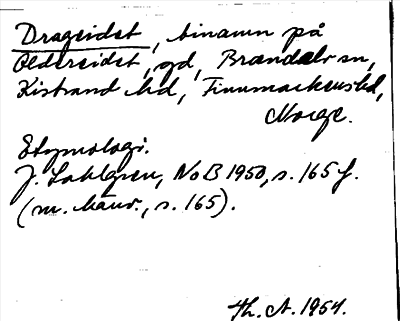 Drageidet, binamn på
Oldereidet, gd, Brandalv sn,
Kistrand hd, Finnmarkens ld,
Norge.
Etymologi.
J. Sahlgren, NoB 1950, s. 165 f.
(m. hänv., s. 165).
Th. A. 1954.